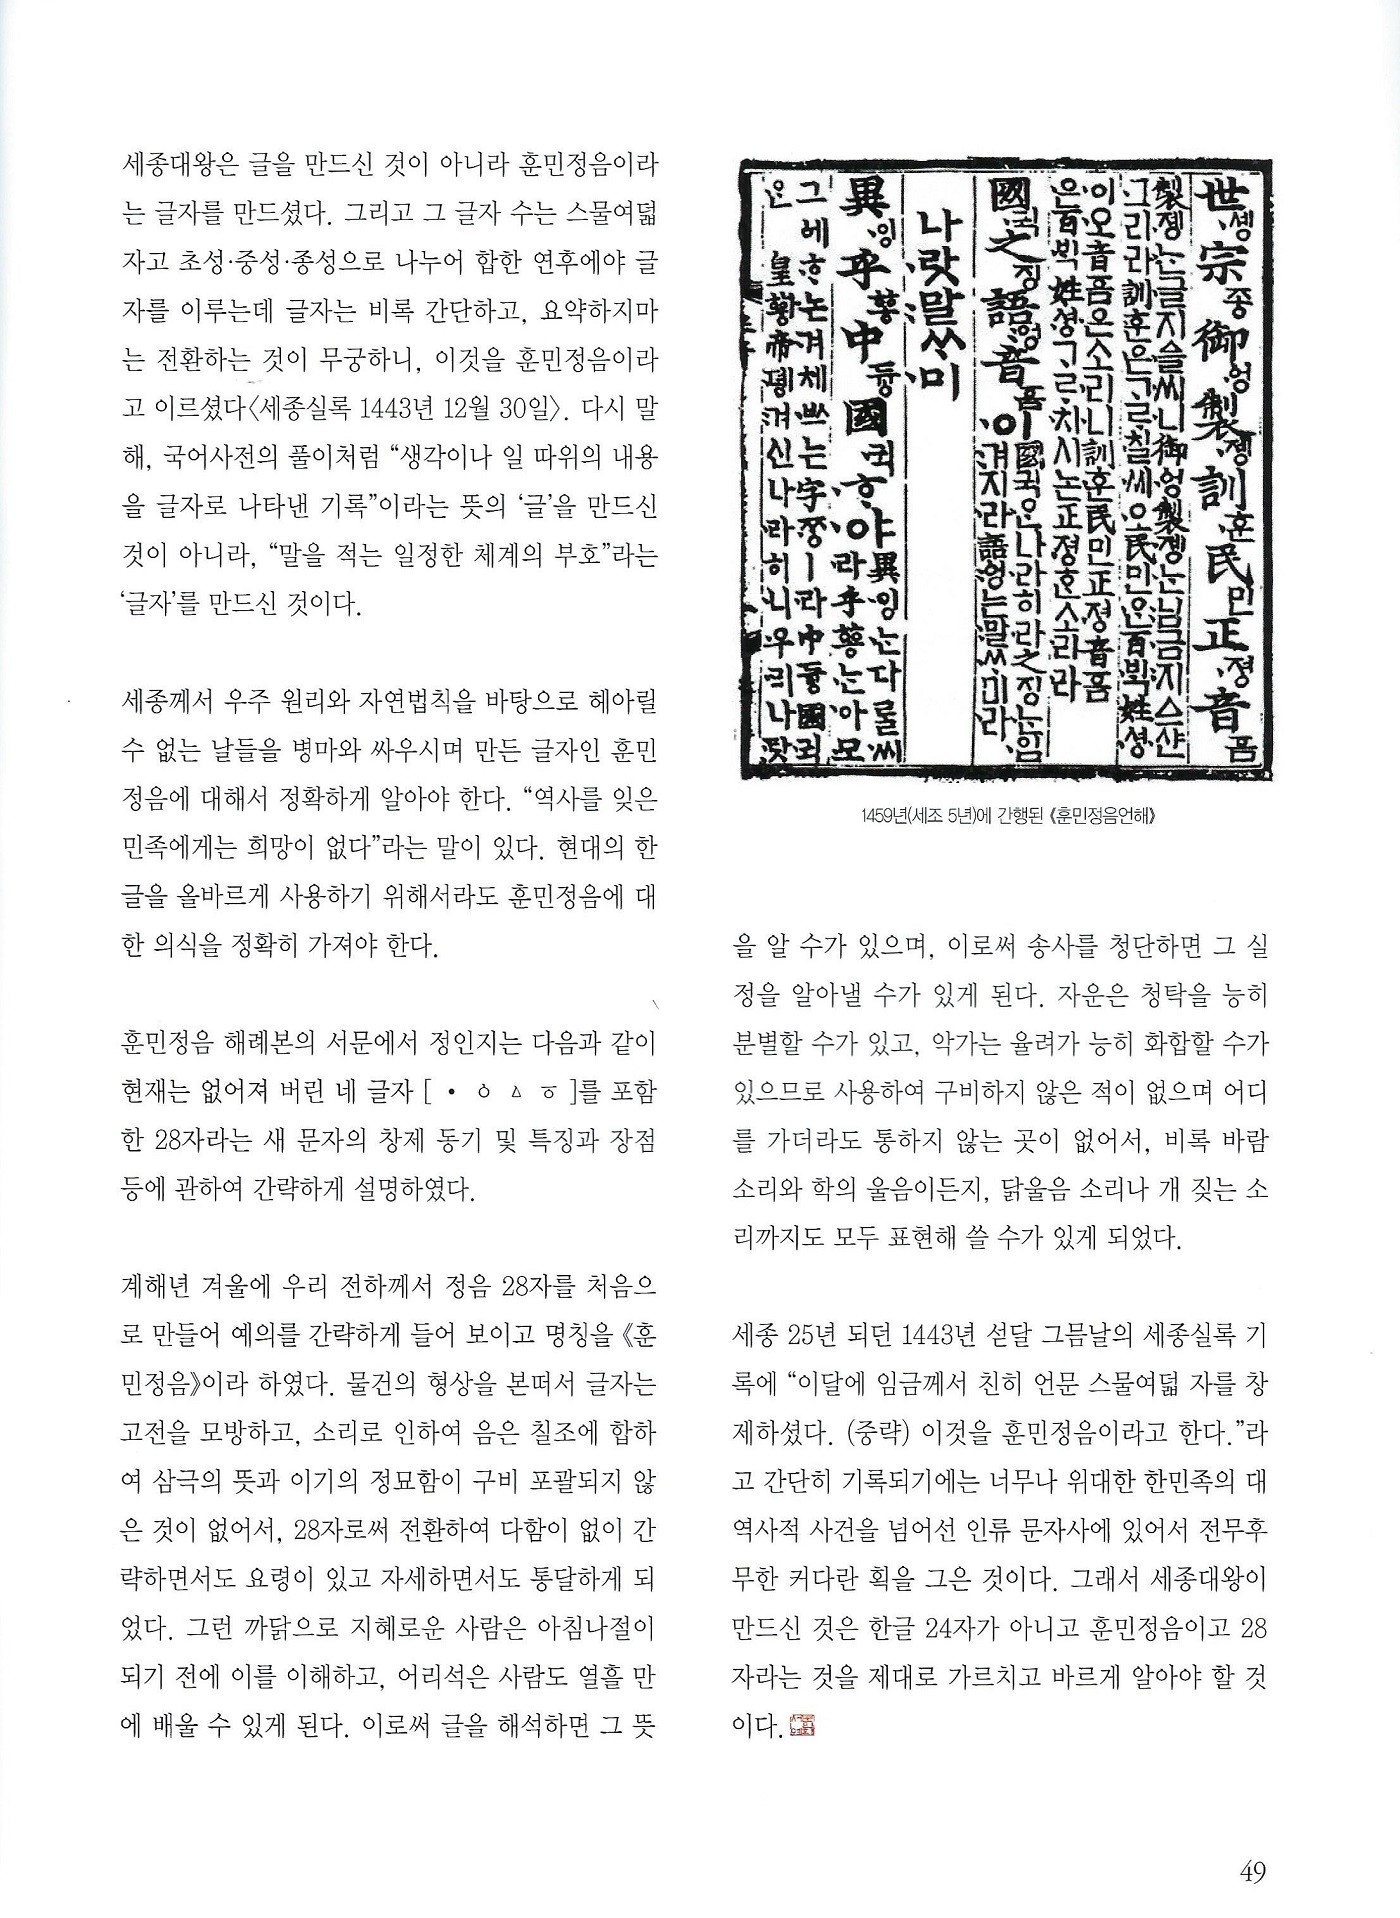 세종대왕은 글을 만드신 것이 아니라 훈민정음이라
는 글자를 만드셨다. 그리고 그 글자 수는 스물여덟
자고 초성·중성·종성으로 나누어 합한 연후에야 글
자를 이루는데 글자는 비록 간단하고, 요약하지마
는 전환하는 것이 무궁하니, 이것을 훈민정음이라
고 이르셨다〈세종실록 1443년 12월 30일〉. 다시 말
해, 국어사전의 풀이처럼 “생각이나 일 따위의 내용
을 글자로 나타낸 기록”이라는 뜻의 ‘글’을 만드신
것이 아니라, “말을 적는 일정한 체계의 부호”라는
‘글자’를 만드신 것이다.
세종께서 우주 원리와 자연법칙을 바탕으로 헤아릴
수 없는 날들을 병마와 싸우시며 만든 글자인 훈민
정음에 대해서 정확하게 알아야 한다. “역사를 잊은
민족에게는 희망이 없다”라는 말이 있다. 현대의 한
글을 올바르게 사용하기 위해서라도 훈민정음에 대
한 의식을 정확히 가져야 한다.
훈민정음 해례본의 서문에서 정인지는 다음과 같이
현재는 없어져 버린 네 글자 [ • ㆁ ㅿ ㆆ ]를 포함
한 28자라는 새 문자의 창제 동기 및 특징과 장점
등에 관하여 간략하게 설명하였다.
계해년 겨울에 우리 전하께서 정음 28자를 처음으
로 만들어 예의를 간략하게 들어 보이고 명칭을 《훈
민정음》이라 하였다. 물건의 형상을 본떠서 글자는
고전을 모방하고, 소리로 인하여 음은 칠조에 합하
여 삼극의 뜻과 이기의 정묘함이 구비 포괄되지 않
은 것이 없어서, 28자로써 전환하여 다함이 없이 간
략하면서도 요령이 있고 자세하면서도 통달하게 되
었다. 그런 까닭으로 지혜로운 사람은 아침나절이
되기 전에 이를 이해하고, 어리석은 사람도 열흘 만
에 배울 수 있게 된다. 이로써 글을 해석하면 그 뜻
世솅宗종御ᅌᅥᆼ製졩訓훈民민正졍音ᅙᅳᆷ
製졩는글지ᅀᅳᆯ씨니御ᅌᅥᆼ製졩는님금지ᅀᅳ샨
그리라訓훈은ᄀᆞᄅᆞ칠씨오民민은百ᄇᆡᆨ姓셩
이오音ᅙᅳᆷ은소리니訓훈民민正졍音ᅙᅳᆷ
은百ᄇᆡᆨ姓셩ᄀᆞᄅᆞ치시논正졍ᄒᆞᆫ소리라
國귁之징語ᅌᅥᆼ音ᅙᅳᆷ이國귁은나라히라之징는입
겨지라語ᅌᅥᆼ는말ᄊᆞ미라
나랏말ᄊᆞ미
異잉乎ᅘᅩᆼ中듀ᇰ國귁ᄒᆞ야異잉는다ᄅᆞᆯ씨
라乎ᅘᅩᆼ는아모
그ᅌᅦᄒᆞ논겨체ᄡᅳ는字ᄍᆞᆼㅣ라中듀ᇰ國귁
은皇ᅘᅪᇰ帝뎽겨신나라히니우리나랏
1459년(세조 5년)에 간행된 《훈민정음언해》
을 알 수가 있으며, 이로써 송사를 청단하면 그 실
정을 알아낼 수가 있게 된다. 자운은 청탁을 능히
분별할 수가 있고, 악가는 율려가 능히 화합할 수가
있으므로 사용하여 구비하지 않은 적이 없으며 어디
를 가더라도 통하지 않는 곳이 없어서, 비록 바람
소리와 학의 울음이든지, 닭울음 소리나 개 짖는 소
리까지도 모두 표현해 쓸 수가 있게 되었다.
세종 25년 되던 1443년 섣달 그믐날의 세종실록 기
록에 “이달에 임금께서 친히 언문 스물여덟 자를 창
제하셨다. (중략) 이것을 훈민정음이라고 한다.”라
고 간단히 기록되기에는 너무나 위대한 한민족의 대
역사적 사건을 넘어선 인류 문자사에 있어서 전무후
무한 커다란 획을 그은 것이다. 그래서 세종대왕이
만드신 것은 한글 24자가 아니고 훈민정음이고 28
자라는 것을 제대로 가르치고 바르게 알아야 할 것
이다.
49